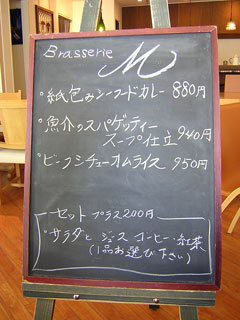 Brasserie M
・紙包みシーフードカレー 880円
・魚介のスパゲッティー
スープ仕立 940円
・ビーフシチューオムライス 950円
セット プラス200円
・サラダと ジュース コーヒー・紅茶
(1品お選び下さい)